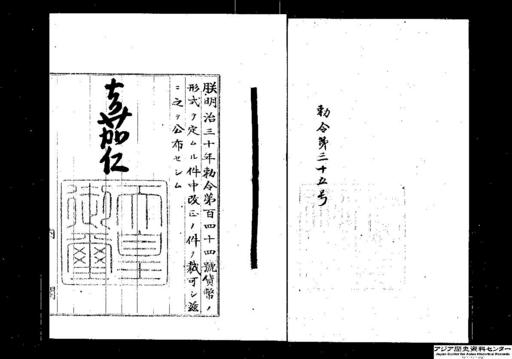 勅令第三十五号
朕明治三十年勅令第百四十四號貨幣ノ
形式ヲ定ムル件中改正ノ件ヲ裁可シ茲
ニ之ヲ公布セシム
嘉仁
天皇
御璽
内閣
アジア歴史資料センター
Japan Center for Asian Historical Records